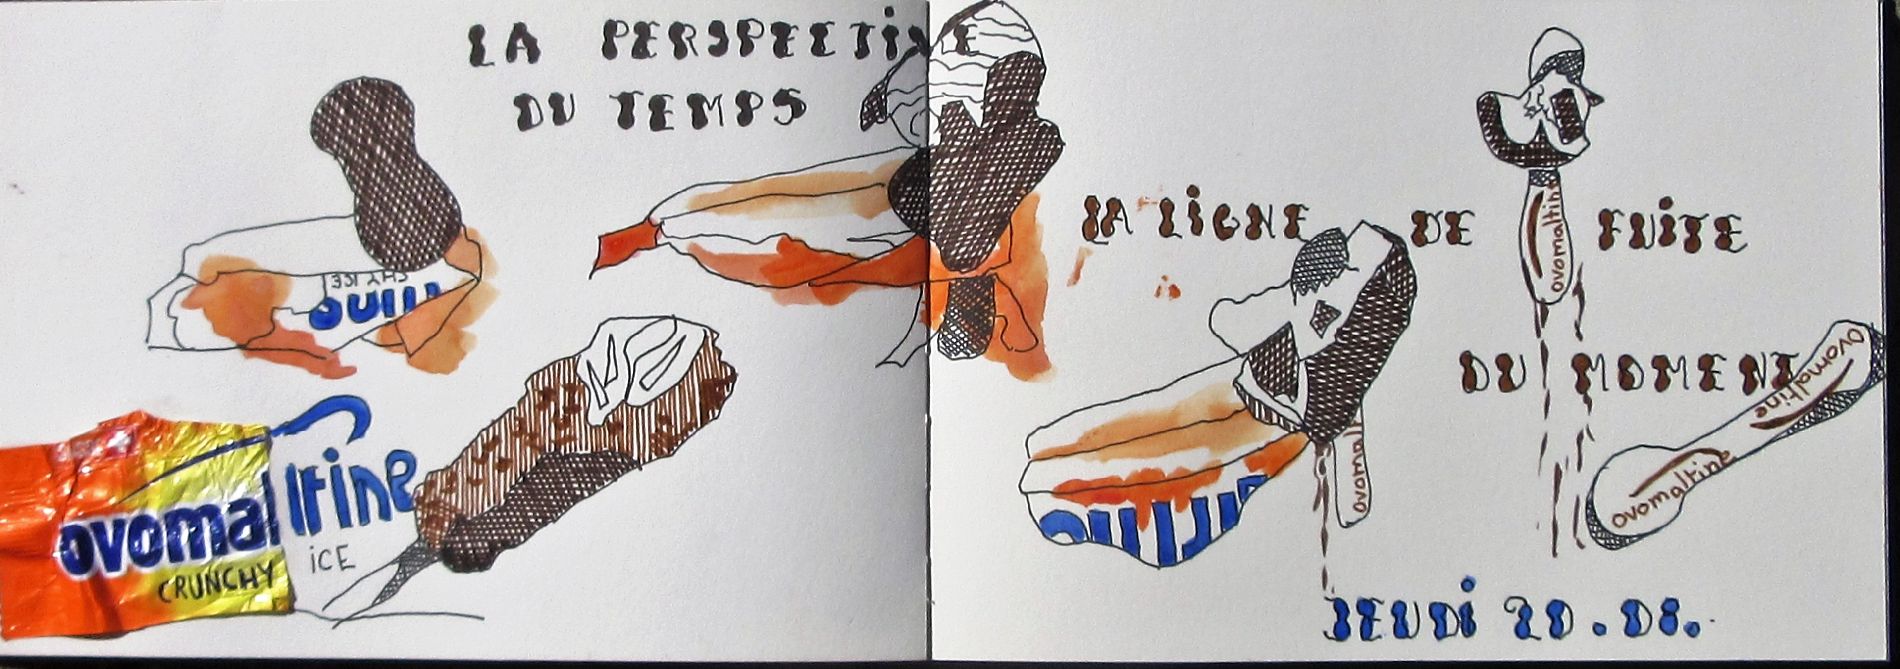 LA PERSPECTIVE
DU TEMPS
CHY ICE
ovomaltine
CRUNCHY
ICE
LA LIGNE DE FUITE
DU MOMENT
ovomaltine
ovomaltine
ovomaltine
ovomalt
JEUDI 20.08.